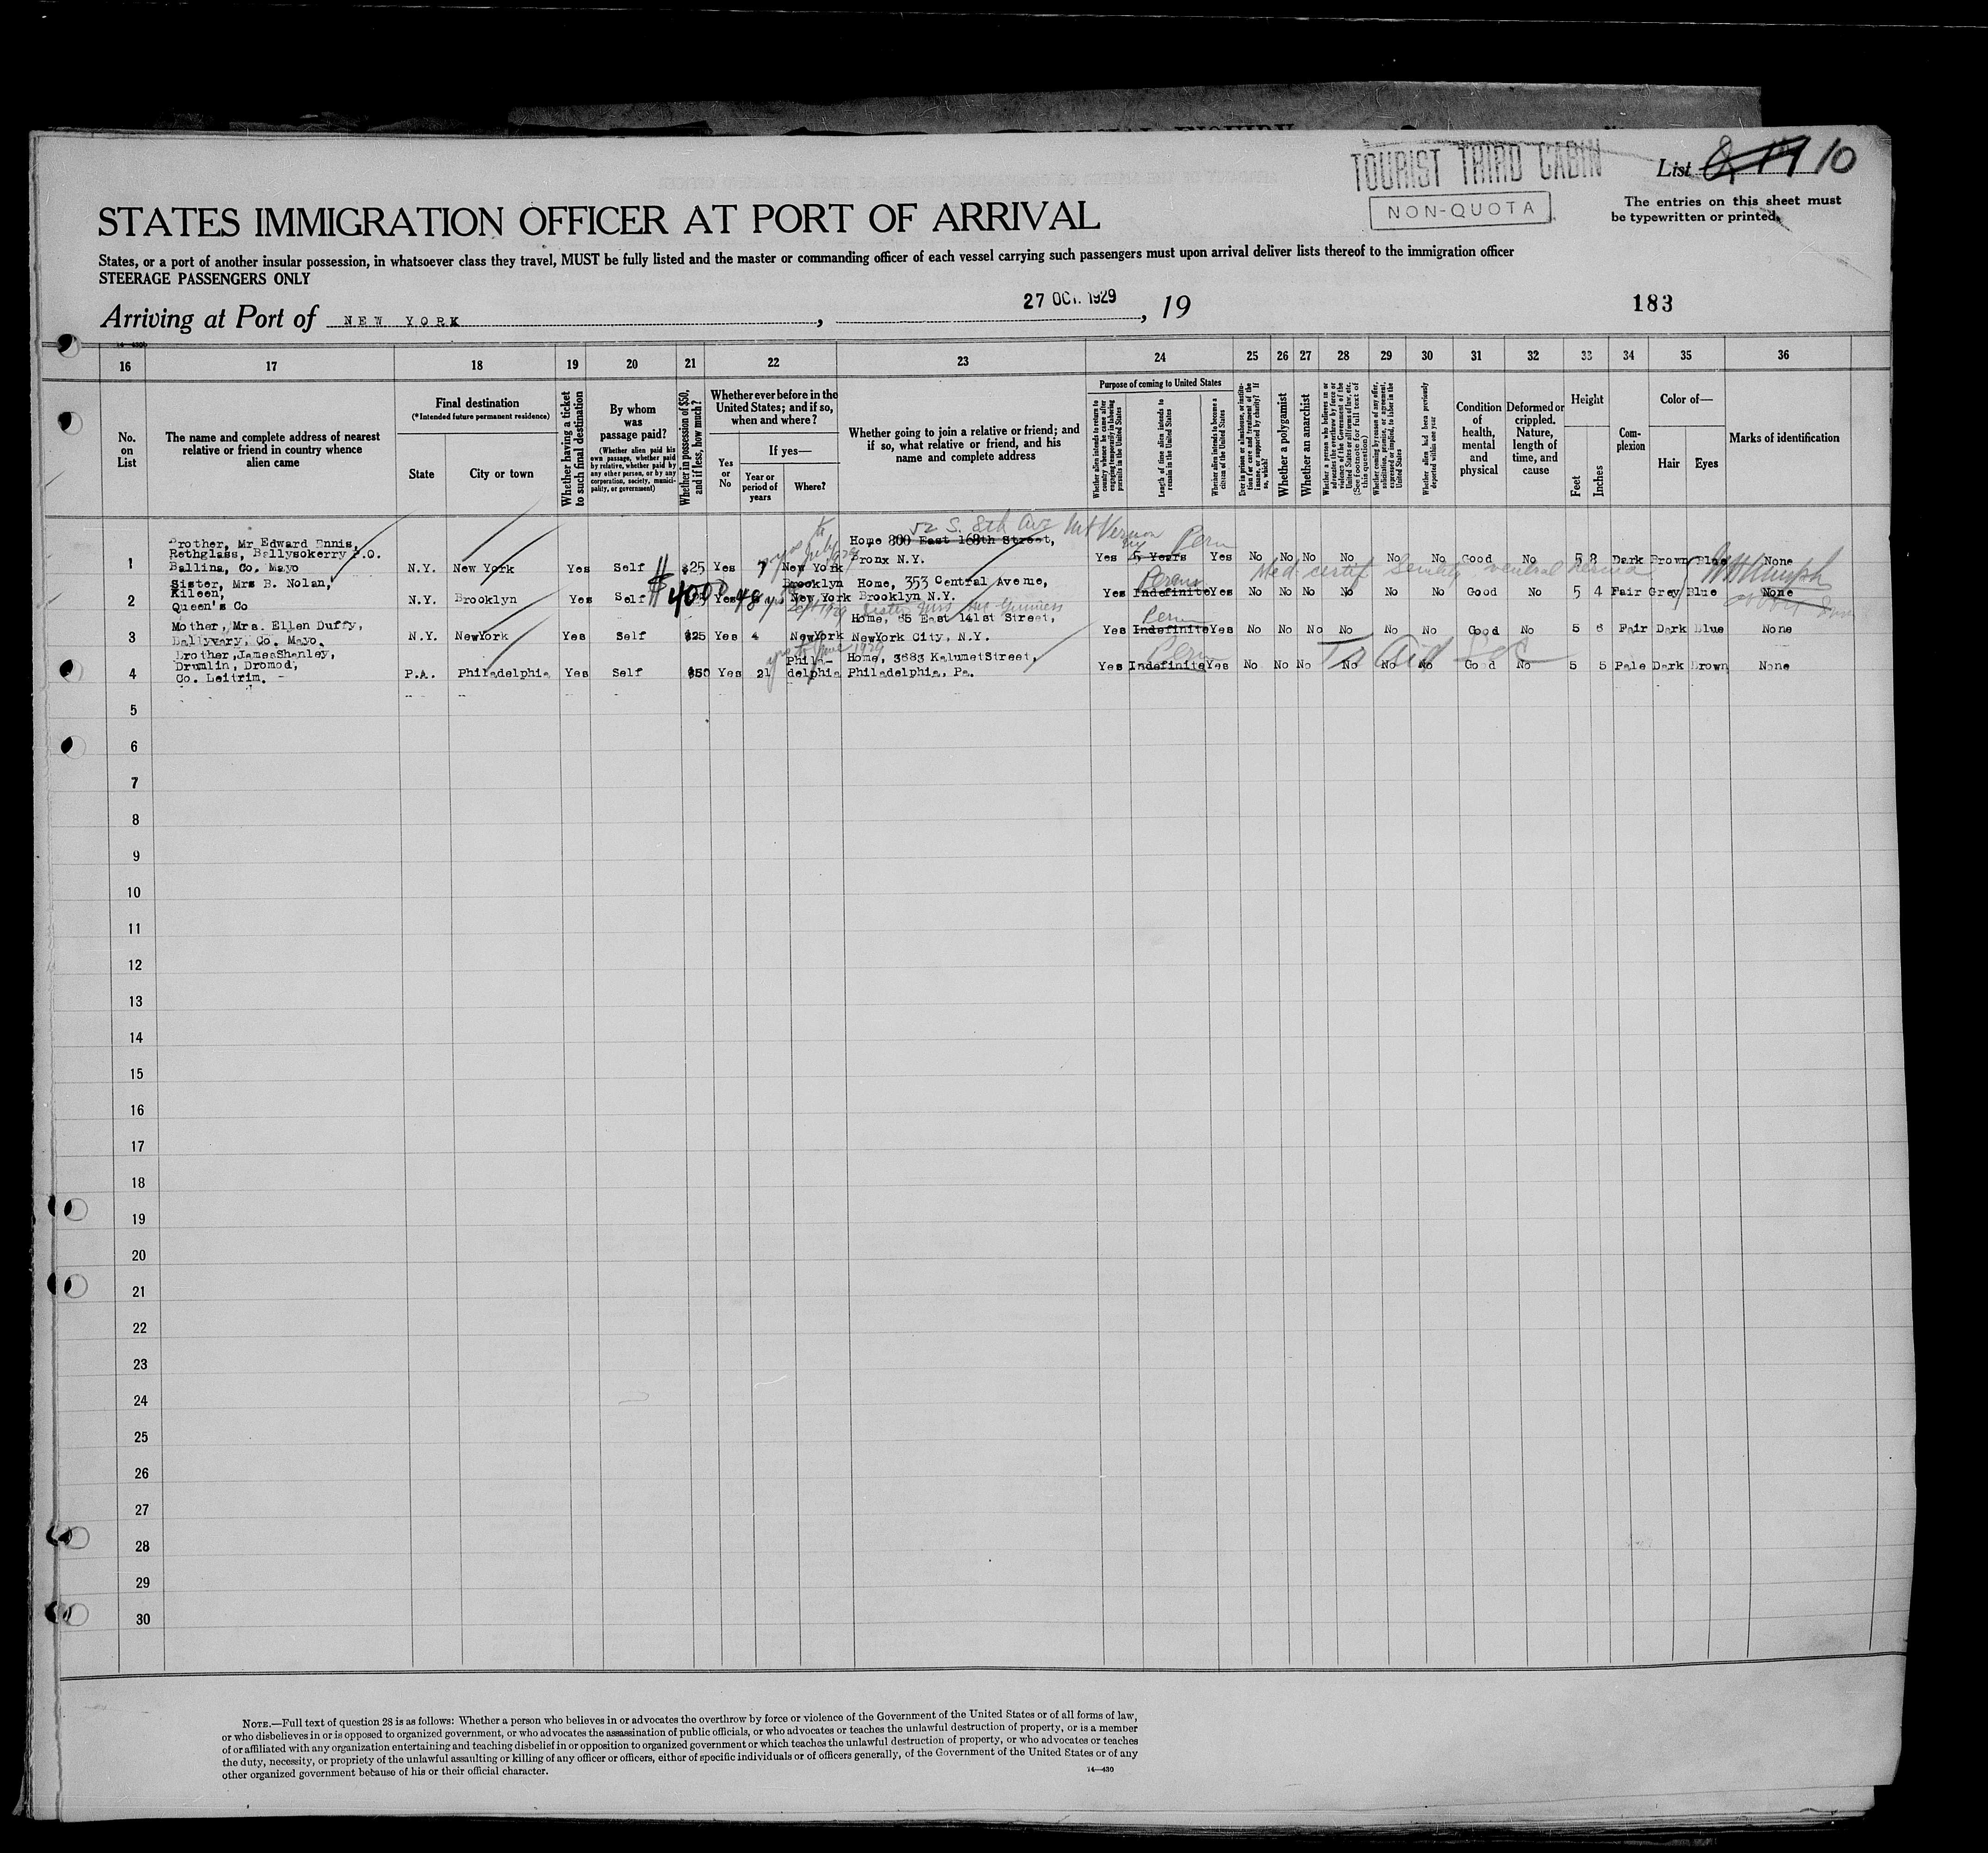 TOURIST THIRD CABIN
NON-QUOTA
List 10
The entries on this sheet must
be typewritten or printed.
STATES IMMIGRATION OFFICER AT PORT OF ARRIVAL
States, or a port of another insular possession, in whatsoever class they travel, MUST be fully listed and the master or commanding officer of each vessel carrying such passengers must upon arrival deliver lists thereof to the immigration officer
STEERAGE PASSENGERS ONLY
Arriving at Port of NEW YORK, 27 OCT. 1929, 19
183
16 17 18 19 20 21 22 23 24 25 26 27 28 29 30 31 32 33 34 35 36
No.
on
List
The name and complete address of nearest
relative or friend in country whence
alien came
Final destination
(*Intended future permanent residence)
State
City or town
Whether having a ticket
to such final destination
By whom
was
passage paid?
(Whether alien paid his
own passage, whether paid
by relative, whether paid by
any other person, or by any
corporation, society, munici-
pality, or government)
Whether in possession of $50,
and if less, how much?
Whether ever before in the
United States; and if so,
when and where?
Yes
or
No
If yes—
Year or
period of
years
Where?
Whether going to join a relative or friend; and
if so, what relative or friend, and his
name and complete address
Purpose of coming to United States
Whether alien intends to return to
country whence he came after
engaging temporarily in laboring
pursuits in the United States
Length of time alien intends to
remain in the United States
Whether alien intends to become a
citizen of the United States
Ever in prison or almshouse, or institu-
tion for care and treatment of the
insane, or supported by charity? If
so, which?
Whether a polygamist
Whether an anarchist
Whether a person who believes in or
advocates the overthrow by force or
violence of the Government of the
United States or all forms of law, etc.
(See footnote for full text of
this question)
Whether coming by reason of any offer,
solicitation, promise, or agreement,
expressed or implied, to labor in the
United States
Whether alien had been previously
deported within one year
Condition
of
health,
mental
and
physical
Deformed or
crippled.
Nature,
length of
time, and
cause
Height
Feet
Inches
Com-
plexion
Color of—
Hair
Eyes
Marks of identification
52 S. 8th Ave Mt Vernon
NY
Perm
Brother, Mr Edward Ennis, Home 800 East 168th Street,
Rethglass, Ballysokerry P.O.
1 Ballina, Co. Mayo N.Y. New York Yes Self $25 Yes 7 New York Bronx N.Y. Yes 5 Years Yes No No No No No No Good No 5 8 Dark Brown Blue None
Med certif Senility ventral hernia
Sister, Mrs B. Nolan, Brooklyn Home, 353 Central Aveme,
Kileen, $4000 Perm
2 Queen's Co N.Y. Brooklyn Yes Self Yes 48 New York Brooklyn N.Y. Yes Indefinite Yes No No No No No No Good No 5 4 Fair Grey Blue None
Mother, Mrs. Ellen Duffy, Home, 85 East 141st Street,
Perm
3 Ballyvary, Co. Mayo. N.Y. NewYork Yes Self $25 Yes 4 NewYork NewYork City, N.Y. Yes Indefinite Yes No No No No No No Good No 5 6 Fair Dark Blue None
Brother, JamesShanley, Phila- Home, 3683 KalumetStreet,
Drumlin, Dromod, Perm
4 Co. Leitrim. P.A. Philadelphia Yes Self $50 Yes 21 delphia Philadelphia, Pa. Yes Indefinite Yes No No No No No No Good No 5 5 Pale Dark Brown None
5
6
7
8
9
10
11
12
13
14
15
16
17
18
19
20
21
22
23
24
25
26
27
28
29
30
NOTE.—Full text of question 28 is as follows: Whether a person who believes in or advocates the overthrow by force or violence of the Government of the United States or of all forms of law,
or who disbelieves in or is opposed to organized government, or who advocates the assassination of public officials, or who advocates or teaches the unlawful destruction of property, or is a member
of or affiliated with any organization entertaining and teaching disbelief in or opposition to organized government or which teaches the unlawful destruction of property, or who advocates or teaches
the duty, necessity, or propriety of the unlawful assaulting or killing of any officer or officers, either of specific individuals or of officers generally, of the Government of the United States or of any
other organized government because of his or their official character.
14—430